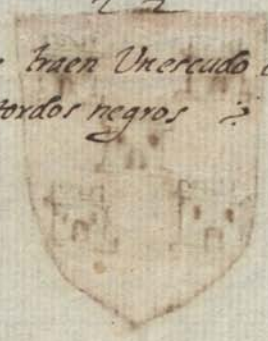 traen Un escudo
tordos negros